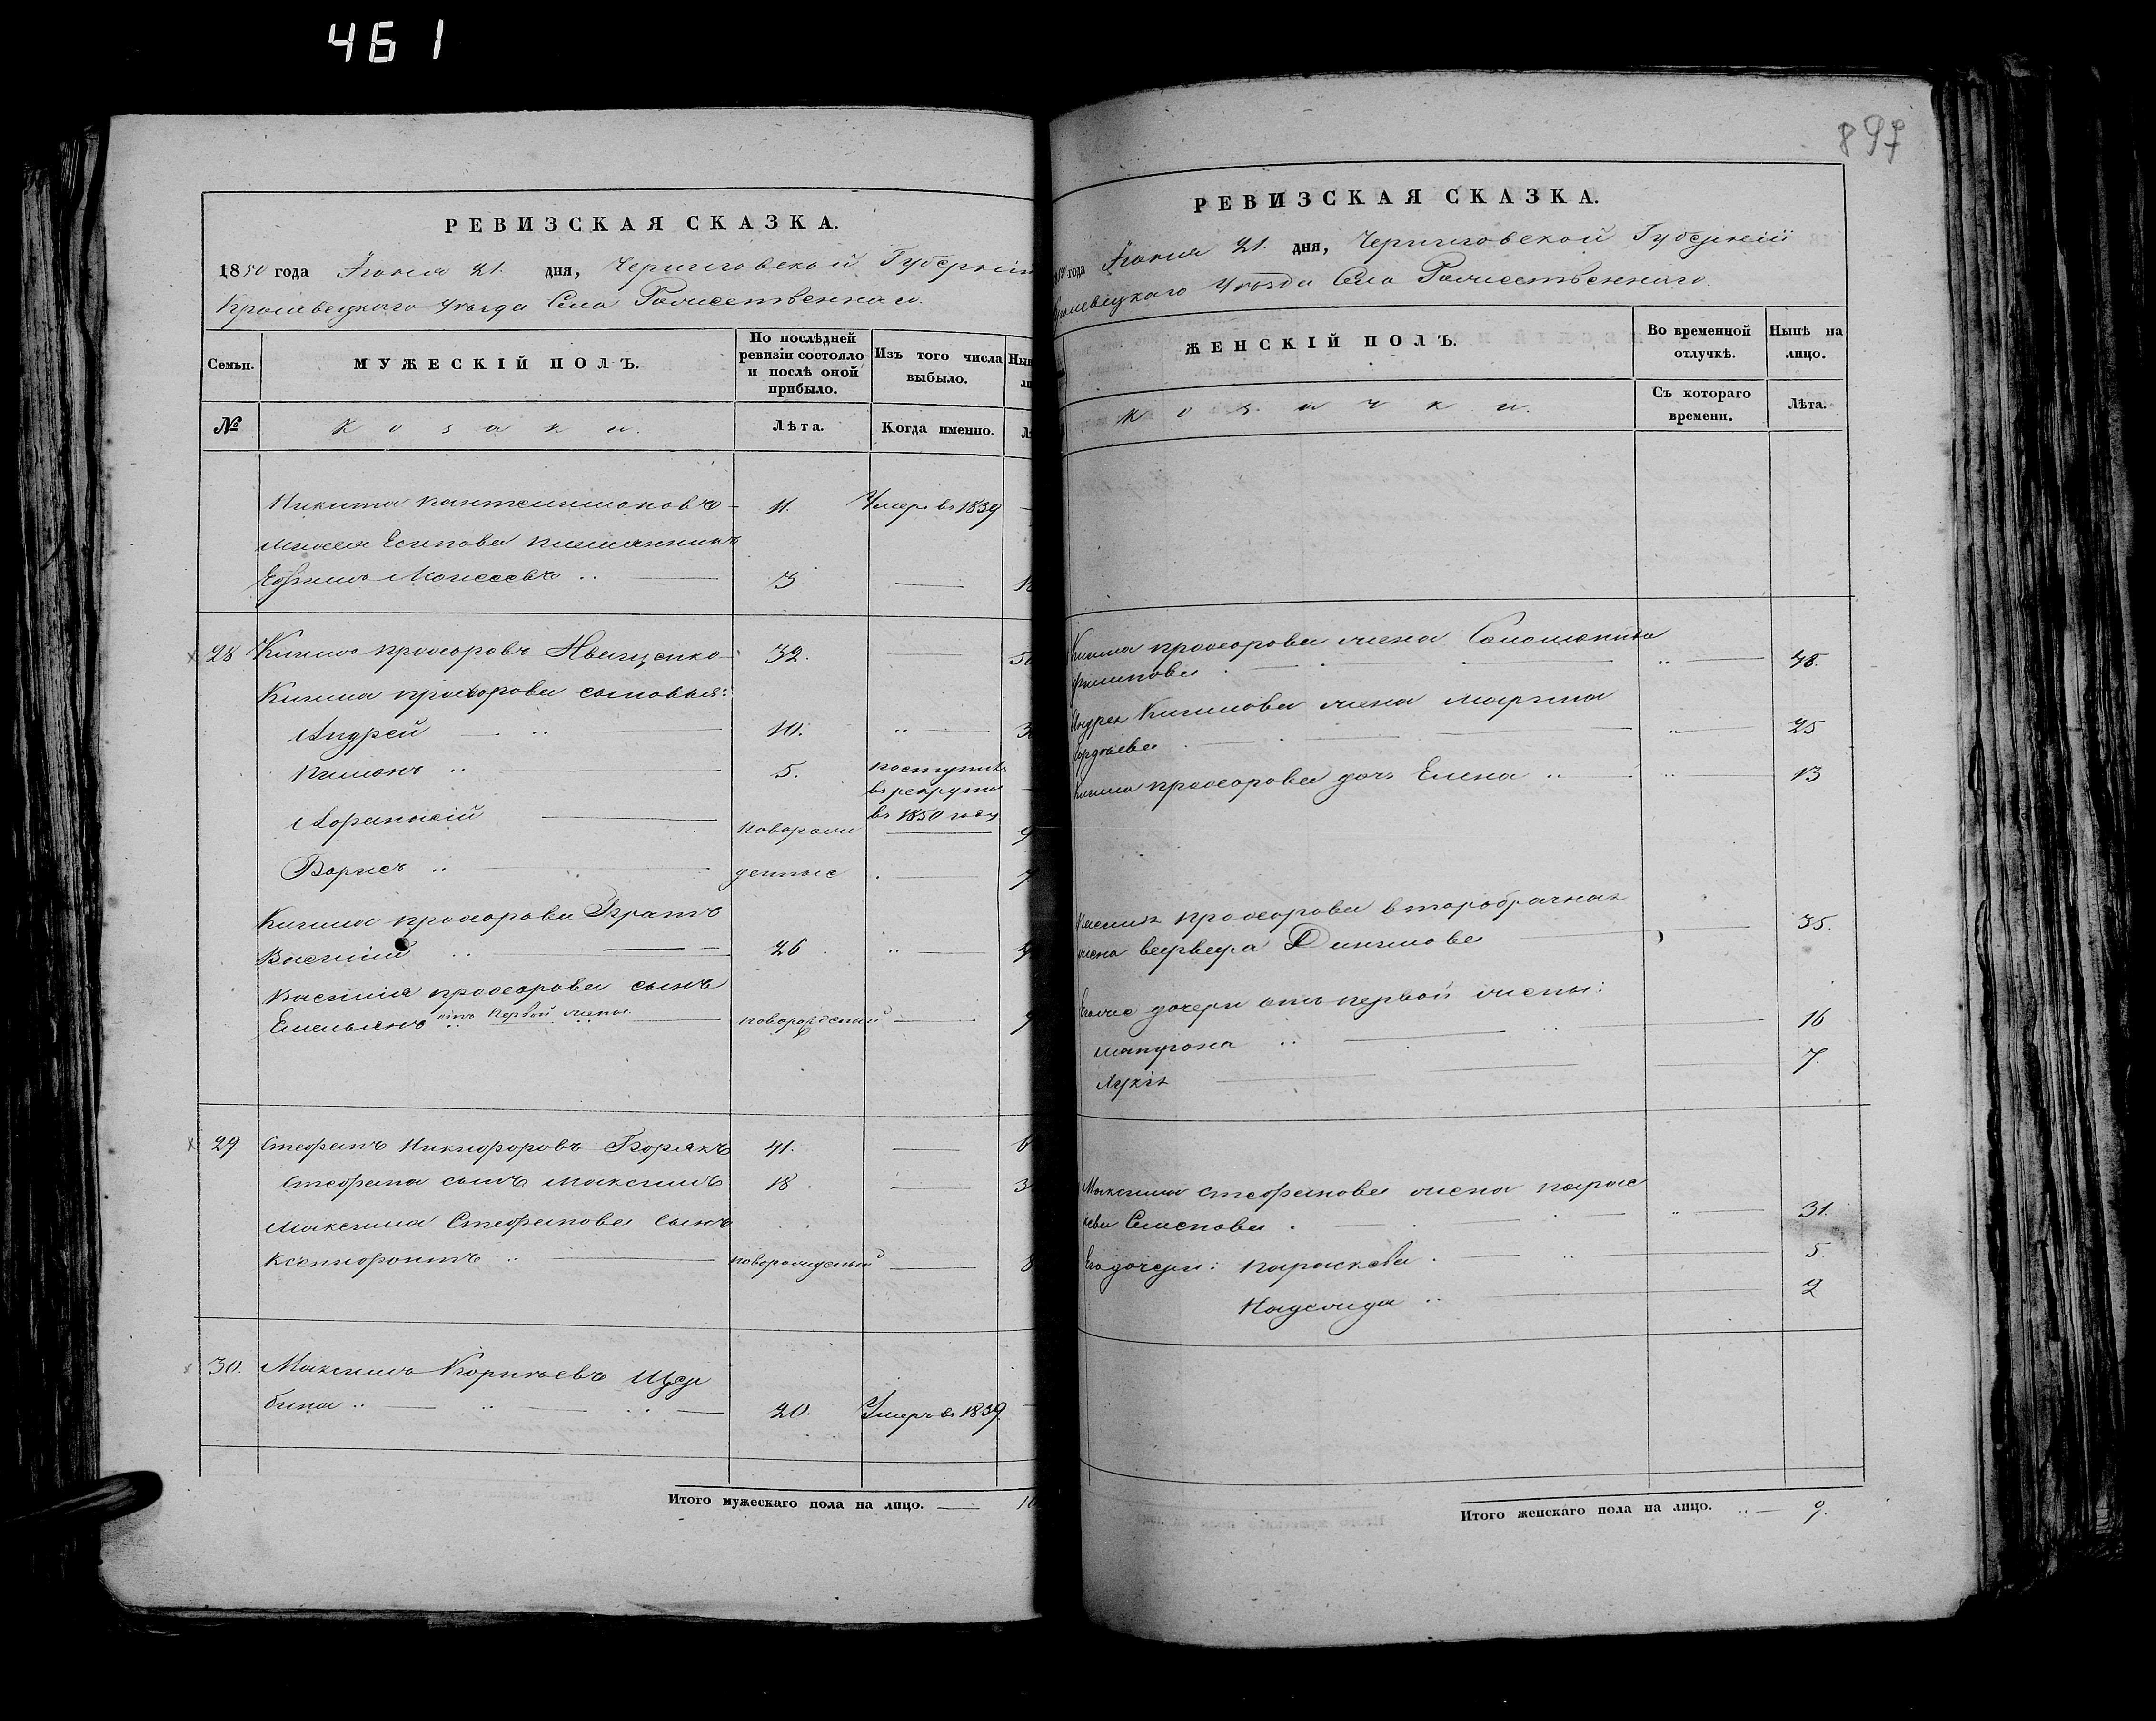 461
РЕВИЗСКАЯ СКАЗКА.
1850 года Іюня 21. дня, Черниговской Губерніи
Кролевецкаго уѣзда Села Рожественнаго.
Семьи.
МУЖЕСКІЙ ПОЛЪ.
По послѣдней ревизіи состояло и послѣ оной прибыло.
Изъ того числа выбыло.
№
Козаки.
Лѣта.
Когда именно.
Никита Пантелимоновъ 11. Умеръ въ 1839
Моисея Есипова племянникъ
Ефимъ Моисеевъ .. 3
28 Прохоровъ Иващенко 32.
Прохорова сыновья:
Андрей .. 10.
Пименъ .. 5. поступилъ въ рекруты въ 1850 году
Афанасій новорож
Борисъ .. денные
Прохорова братъ
Василий .. 26
Василія Прохорова сынъ
Емельянъ отъ первой жены. новорожденный
29 Стефанъ Никифоровъ Борякъ 41.
Стефана сынъ Максимъ 18.
Максима Стефанова сынъ
Ксенофонтъ .. новорожденый
30. Максимъ Корнѣевъ Щер
бина .. 20. Умеръ въ 1839.
Итого мужескаго пола на лицо.
897
РЕВИЗСКАЯ СКАЗКА.
года Іюня 21. дня, Черниговской Губерніи
Уѣзда Села Рожественнаго.
ЖЕНСКІЙ ПОЛЪ.
Во временной отлучкѣ.
Нынѣ на лицо.
Козачки.
Съ котораго времени.
Лѣта.
Прохорова жена Соломонида
Филипова 48.
Андрея жена Марина
25
Прохорова дочь Елена .. 13
Василія Прохорова второбрачная
жена Варвара 35.
Егоже дочери отъ первой жены:
Матрона .. 16
Лукія 7.
Максима Стефанова жена Парас
кева Семенова 31.
Егодочери: Параскева 5
Надежда .. 2
Итого женскаго пола на лицо. .. 9.